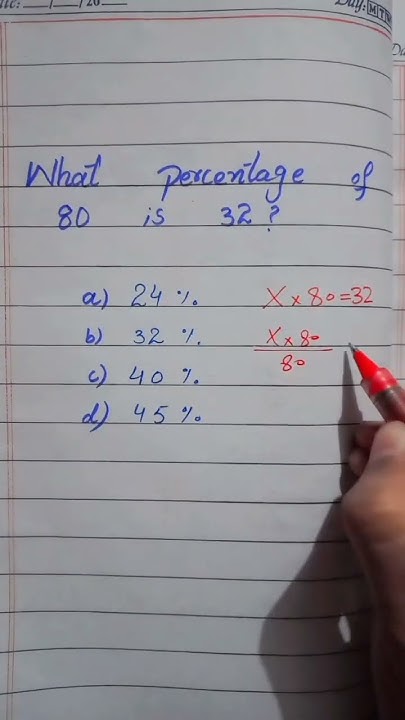 Day: M T
What percentage of
80 is 32?
a) 24 %.
b) 32 %.
c) 40 %.
d) 45 %.
X × 80 = 32
X × 80
80